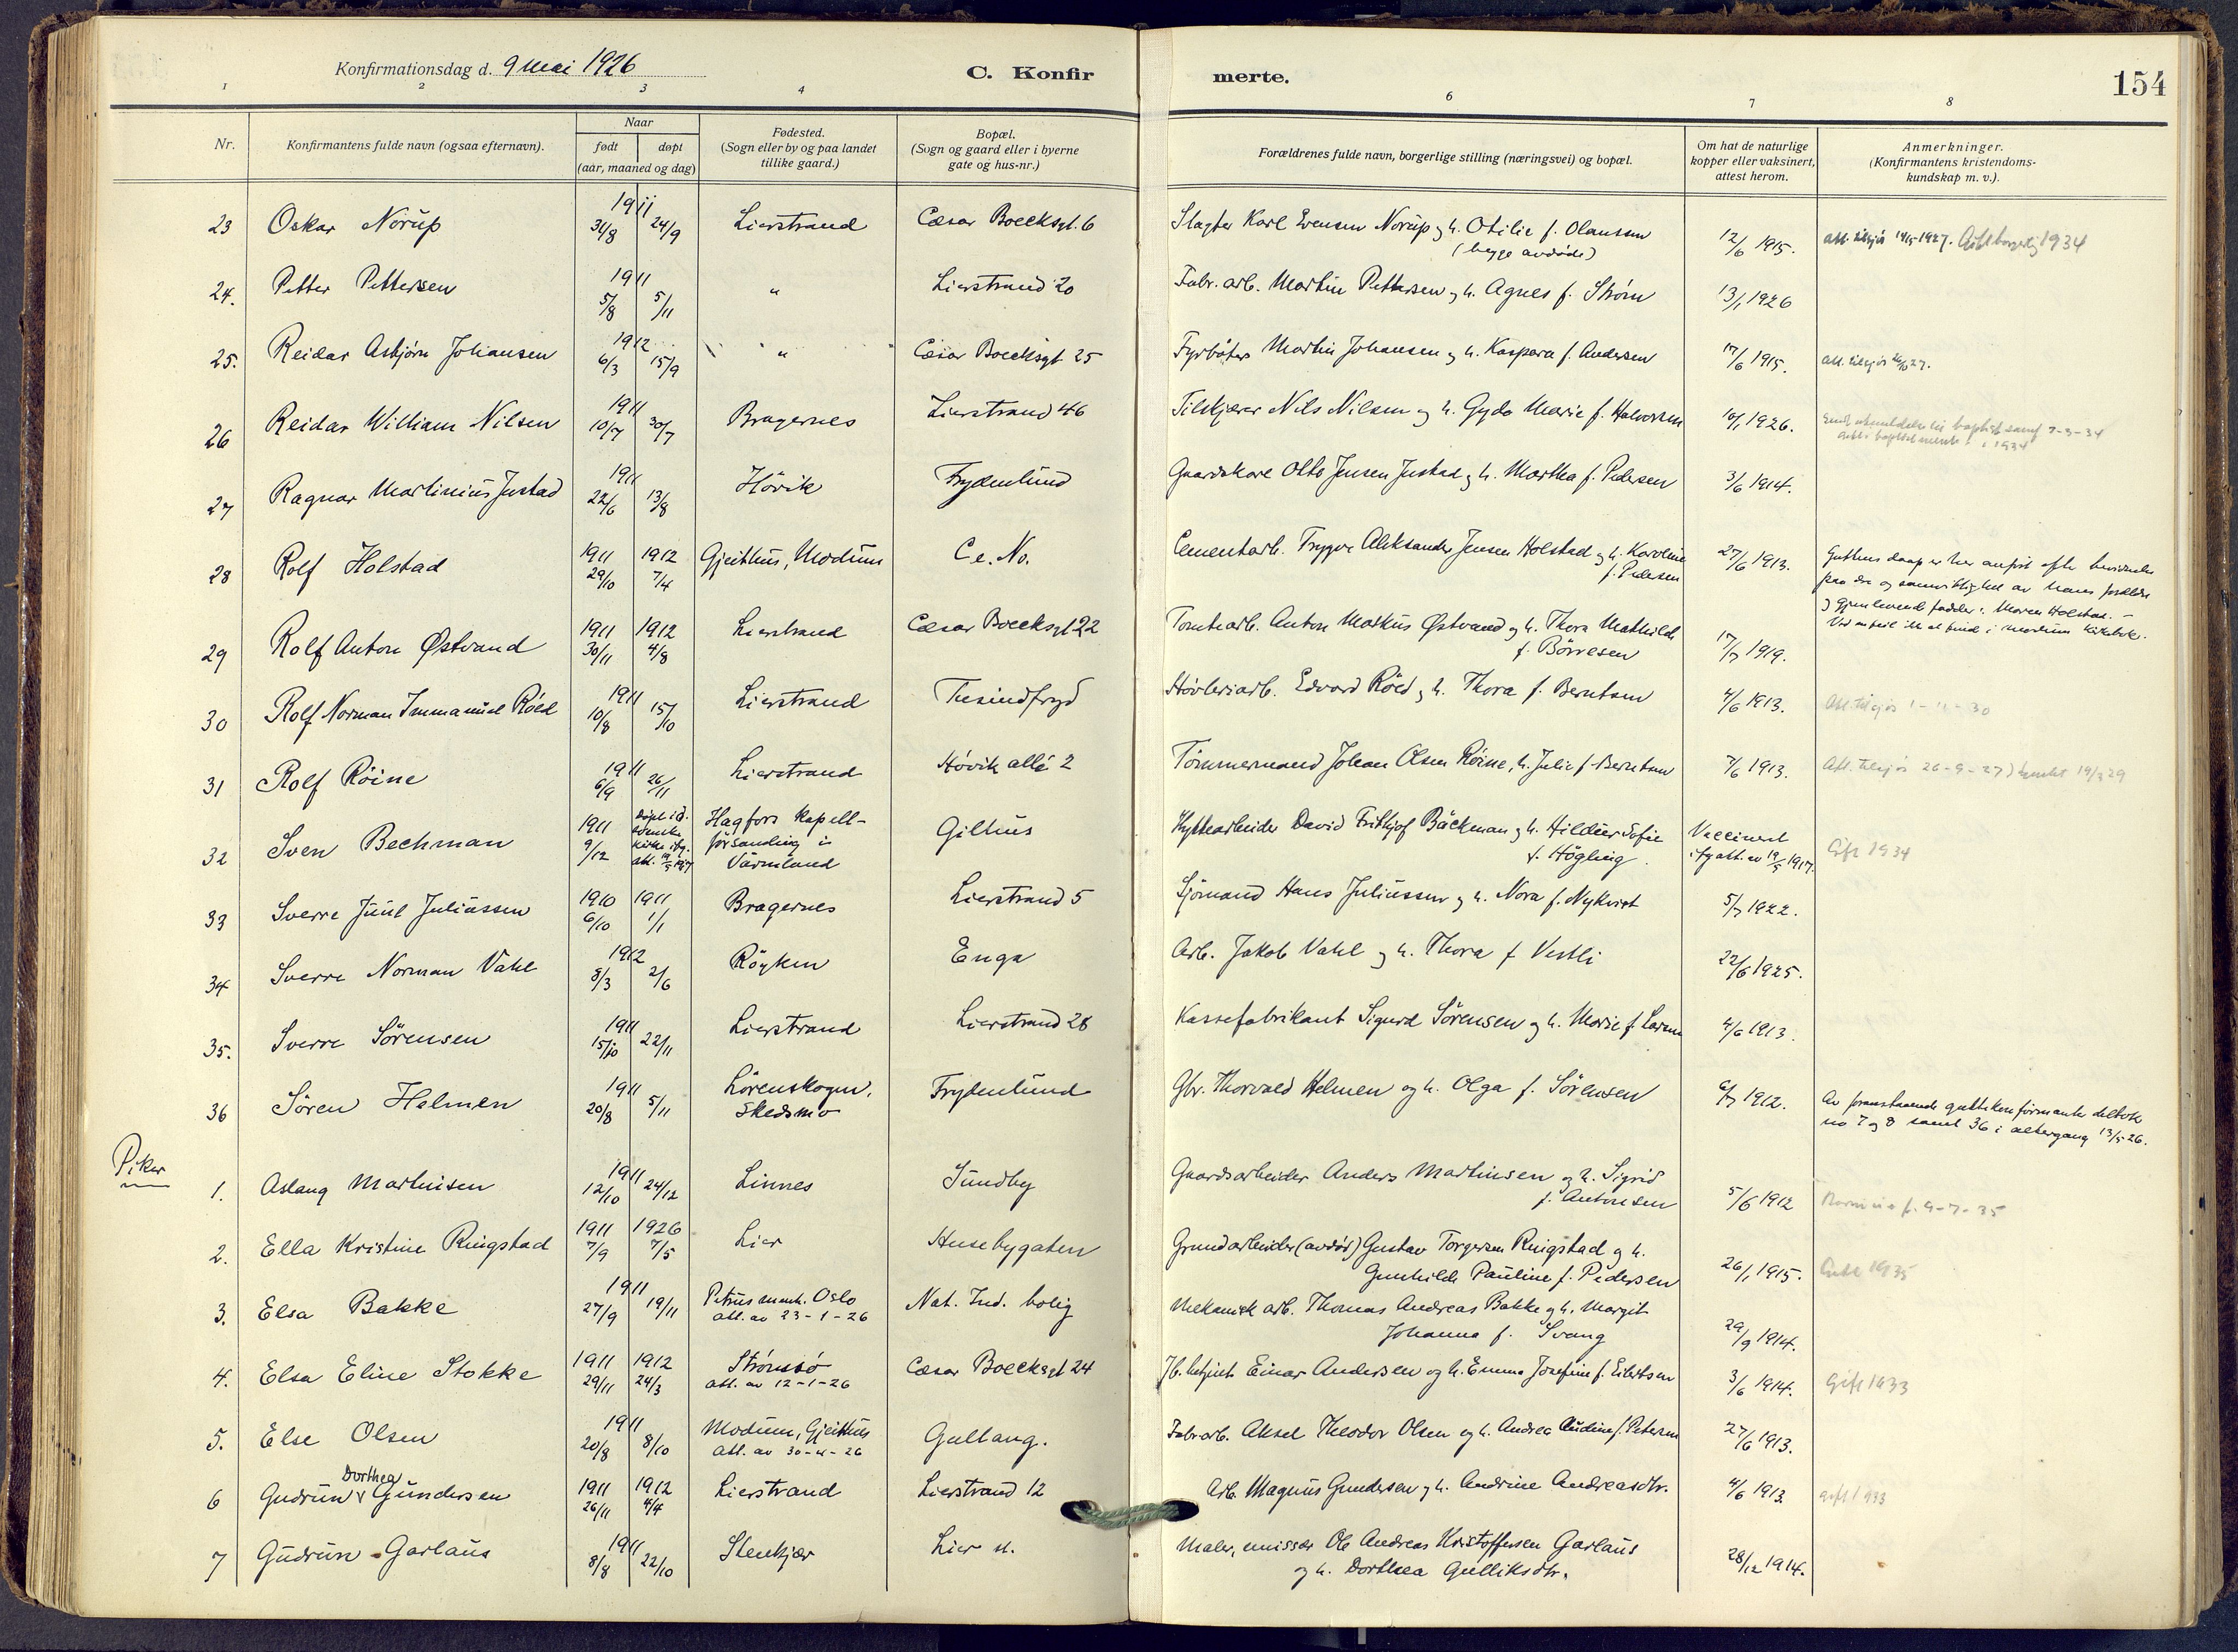 Konfirmationsdag d. 9 mai 1926
C. Konfir merte.
154
1 2 3 4 6 7 8
Nr.
Konfirmantens fulde navn (ogsaa efternavn).
Naar
født døpt
(aar, maaned og dag)
Fødested.
(Sogn eller by og paa landet
tillike gaard.)
Bopæl.
(Sogn og gaard eller i byerne
gate og hus-nr.)
Forældrenes fulde navn, borgerlige stilling (næringsvei) og bopæl.
Om hat de naturlige
kopper eller vaksinert,
attest herom.
Anmerkninger.
(Konfirmantens kristendoms-
kundskap m. v.).
23 Oskar Norup 1911 31/8 24/9 Lierstrand Cæsar Boecksgt. 6 Slagter Karl Evensen Norup og h. Otilie f. Olaussen
(begge avdøde) 12/6 1915. 1934
24. Petter Pettersen 1911 5/8 5/11 " Lierstrand 20 Fabr. arb. Martin Pettersen og h. Agnes f. Strøm 13/1 1926
25. Reidar Asbjørn Johansen 1912 6/3 15/9 " Cæsar Boecksgt 25 Fyrbøter Martin Johansen og h. Kaspara f. Andersen 17/6 1915.
26 Reidar William Nilsen 1911 10/7 30/7 Bragernes Lierstrand 46 Tilskjærer Nils Nilsen og h. Gyda Marie f. Halvorsen 10/1 1926.
27 Ragnar Martinius Justad 1911 22/6 13/8 Hövik Frydenlund Gaardskare Otto Jensen Justad og h. Martha f. Pedersen 3/6 1914.
28 Rolf Holstad 1911 29/10 1912 7/4 Gjeithus, Modum C e. No. Cementarb. Trygve Aleksander Jensen Holstad og h. Karoline
f. Pedersen 27/6 1913.
29 Rolf Anton Østvand 1911 30/11 1912 4/8 Lierstrand Cæsar Boecksgt 22 Tomtearb. Anton Markus Østvand og h. Thora Mathilde
f. Börresen 17/7 1919.
30 Rolf Norman Immanuel Röed 1911 10/8 15/10 Lierstrand Tusindfryd Høvleriarb. Edvard Röed og h. Thora f. Berntsen 4/6 1913.
31 Rolf Röine 1911 6/9 26/11 Lierstrand Hövik allé 2 Tömmermand Johan Olsen Röine, h. Julie f. Berntsen 7/6 1913. Att. tilsjös 26-9-27
32 Sven Bechman 1911 9/12 Hagfors kapell-
församling i
Värmland Gilhus Hyttearbeider David Frithjof Bäckman og h. Hildur Sofie
f. Högling. Vaccinert
ifg att. av 19/5 1917. Gift 1934
33 Sverre Juul Juliussen 1910 6/10 1911 1/1 Bragernes Lierstrand 5 Sjömand Hans Juliussen og h. Nora f. Nykvist 5/7 1922.
34 Sverre Norman Vahl 1912 8/3 2/6 Röyken Enga Arb. Jakob Vahl og h. Thora f Vestli 22/6 1925.
35. Sverre Sörensen 1911 15/10 22/11 Lierstrand Lierstrand 28 Kassefabrikant Sigurd Sörensen og h. Marie f. Larsen 4/6 1913.
36 Sören Helmen 1911 20/8 5/11 Lörenskogen,
Skedsmo Frydenlund Gbr. Thorvald Helmen og h. Olga f. Sörensen 6/7 1912. Av foranstaaende guttekonfirmanter deltok
no 7 og 8 samt 36 i altergang 13/5-26.
Piker
1. Aslaug Martinsen 1911 12/10 24/12 Linnes Sundby Gaardsarbeider Anders Martinsen og h. Sigrid
f. Antonsen 5/6 1912
2. Ella Kristine Ringstad 1911 7/9 1926 7/5 Lier Husebygaten Grundarbeider (avdød) Gustav Torgersen Ringstad og h.
Gunhilde Pauline f. Pedersen 26/1 1915. Gift 1935
3. Elsa Bakke 1911 27/9 19/11 Petrus menh. Oslo
att. av 23-1-26 Nat. Ind. bolig Mekanisk arb. Thomas Andreas Bakke og h. Margit
Johanna f. Svang 29/9 1914.
4. Elsa Eline Stokke 1911 29/11 1912 24/3 Strömsö
att. av 12-1-26 Cæsar Boecksgt 24 Einar Andersen og h. Emma Josefine f. Eilertsen 3/6 1914. Gift 1933
5. Else Olsen 1911 20/8 8/10 Modum, Gjeithus
att. av 30-4-26 Gullaug. Fabr arb. Aksel Theodor Olsen og h. Andrea Audine f. Petersen 27/6 1913.
6 Gudrun Dorthea Gundersen 1911 26/11 1912 4/4 Lierstrand Lierstrand 12 Arb. Magnus Gundersen og h. Andrine Andreasdtr. 4/6 1913. gift 1933
7 Gudrun Garlaus 1911 8/8 22/10 Stenkjær Lier st. Maler, emissær Ole Andreas Kristoffersen Garlaus
og h. Dorthea Gulliksdtr. 28/12 1914.